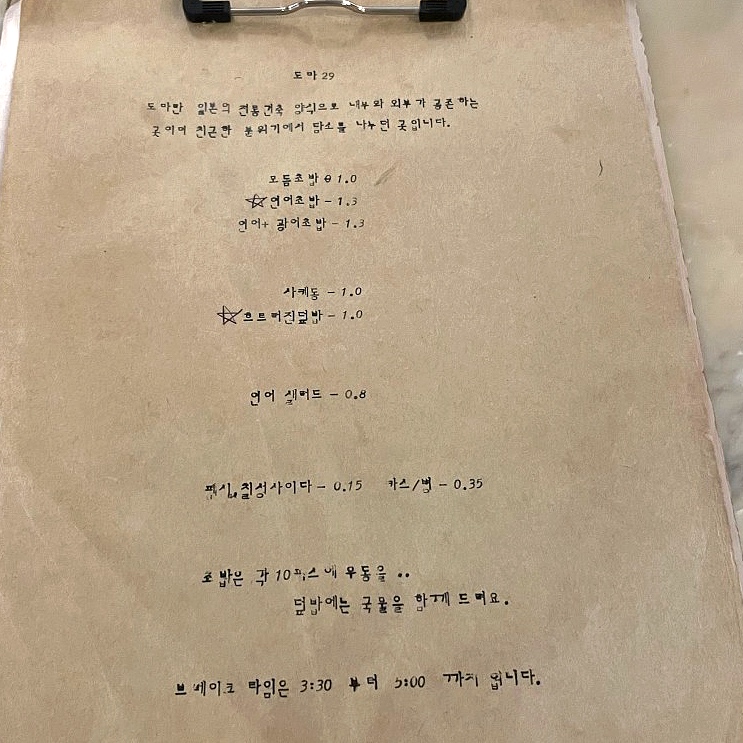 도마 29
도마란 일본의 전통건축 양식으로 내부와 외부가 공존하는
곳이며 친근한 분위기에서 담소를 나누던 곳입니다.
모듬초밥 - 1.0
☆연어초밥 - 1.3
연어+광어초밥 - 1.3
사케동 - 1.0
☆흐트러진덮밥 - 1.0
연어 샐러드 - 0.8
펩시,칠성사이다 - 0.15 카스/병 - 0.35
초밥은 각 10피스에 우동을 ..
덮밥에는 국물을 함께 드려요.
브레이크 타임은 3:30 부터 5:00 까지 입니다.